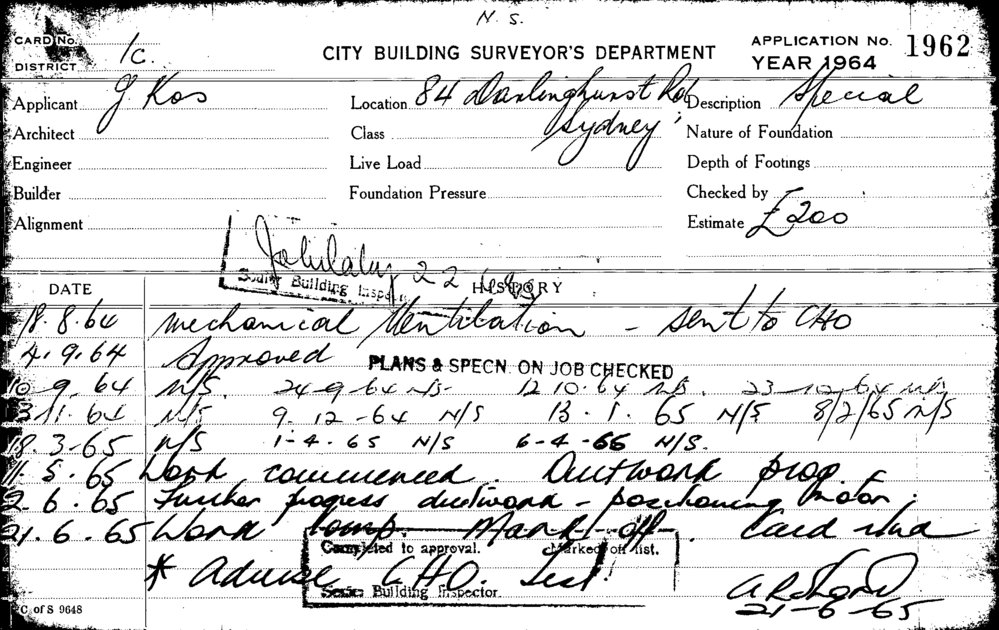 N. S.
CARD No.
DISTRICT 1c.
CITY BUILDING SURVEYOR'S DEPARTMENT
APPLICATION No. 1962
YEAR 1964
Applicant J Kos
Location 84 Darlinghurst Rd
Sydney
Description Special
Architect
Class
Nature of Foundation
Engineer
Live Load
Depth of Footings
Builder
Foundation Pressure
Checked by
Alignment
Estimate £200
22
Senior Building Inspector
DATE HISTORY
18.8.64 Mechanical Ventilation - sent to CHO
4.9.64 Approved
PLANS & SPECN. ON JOB CHECKED
10-9.64 N/S. 24-9-64 N/S- 12 10.64 N/S. 23-10-64 N/S
3.11.64 N/S 9.12-64 N/S 13.1.65 N/S 8/2/65 N/S
18.3-65 N/S 1-4.65 N/S 6-4-66 N/S.
11.5.65 Work commenced. Ductwork prog.
2.6.65 Further progress ductwork - positioning motor.
21.6.65 Work comp. Mark off. Card
Completed to approval. Marked off list.
* Advise CHO. Test!
Senior Building Inspector
21-6-65
PC of S 9648